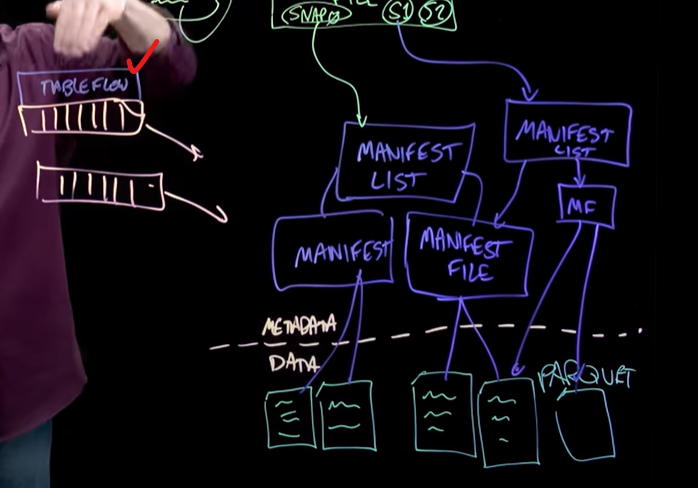 SNAP0 S1 S2
TABLEFLOW
MANIFEST
LIST
MANIFEST
LIST
MF
MANIFEST
MANIFEST
FILE
METADATA
DATA
PARQUET